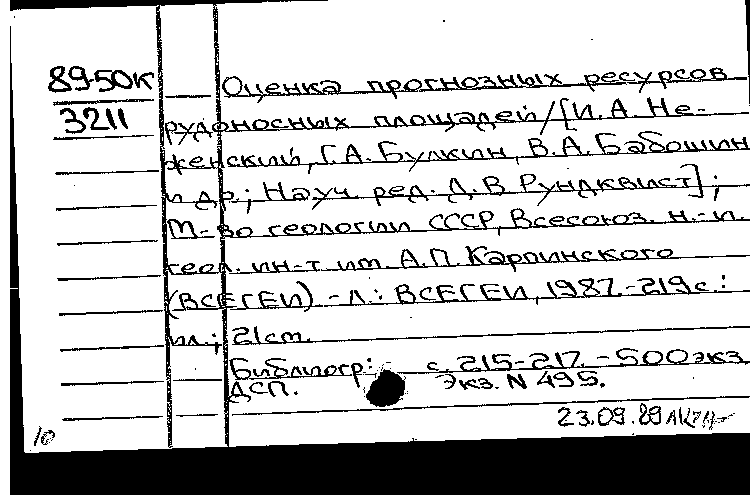 89-50К
3211
Оценка прогнозных ресурсов
рудоносных площадей/[И.А. Не-
женский, Г.А. Булкин, В.А. Бабошин
и др.; Науч. ред. Д.В. Рундквист];
М-во геологии СССР, Всесоюз. н.-и.
геол. ин-т им. А.П. Карпинского
(ВСЕГЕИ) - Л.: ВСЕГЕИ, 1987. - 219 с.:
ил.; 21 см.
Библиогр.: с. 215-217. - 500 экз
ДСП. Экз. N 495.
23.09.89
10